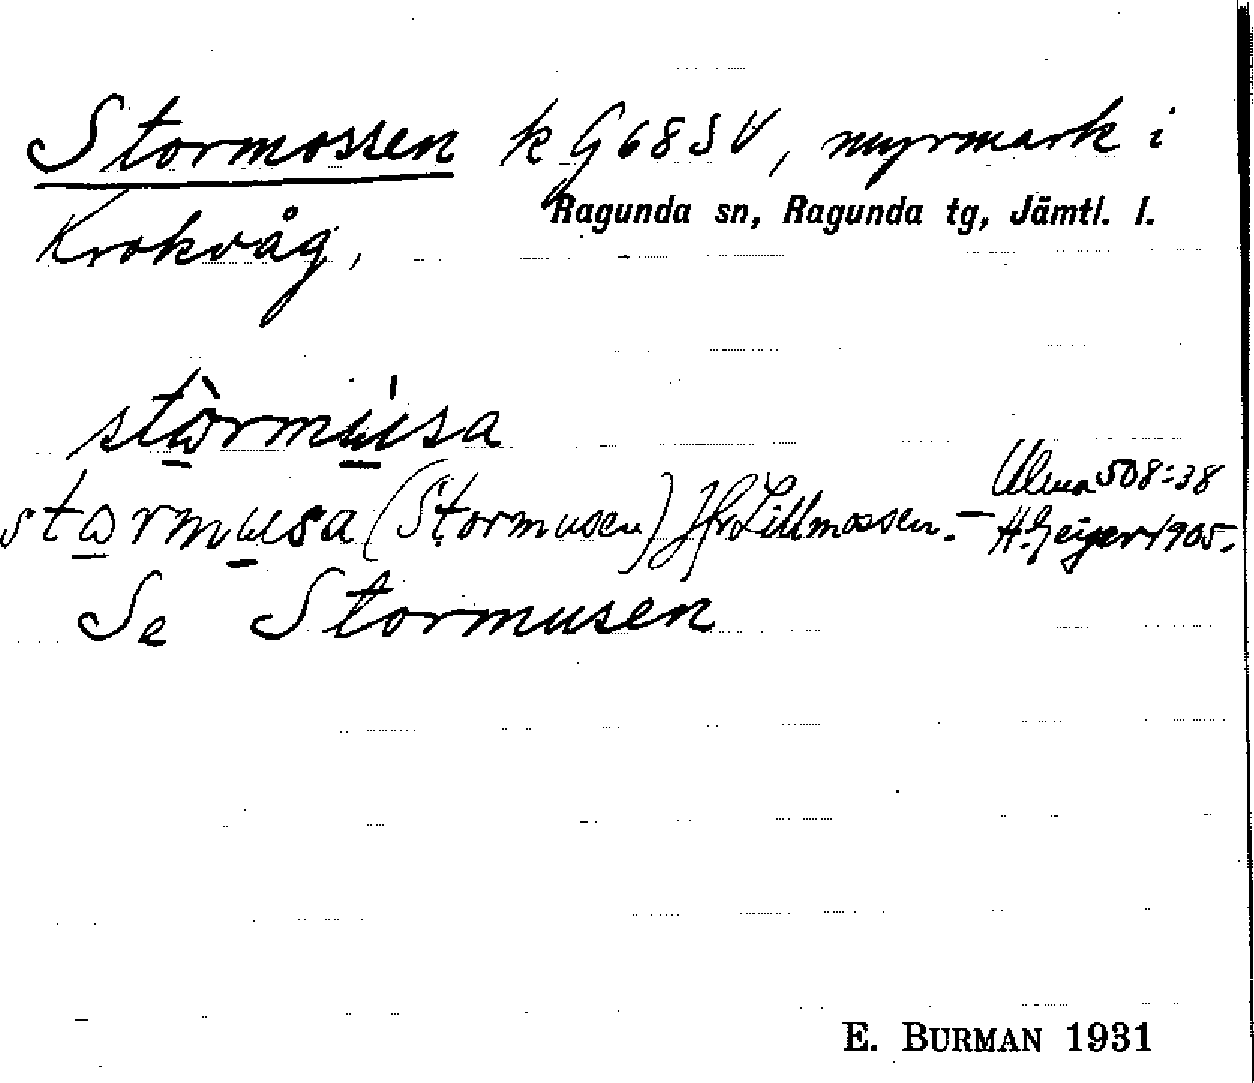 Stormossen k G 68 SV, myrmark i
Ragunda sn, Ragunda tg, Jämtl. l.
Krokvåg,
stòrmúsa
stormusa (Stormusen) Jfr Lillmossen. – Ulma 508:38
H. Geijer 1905.
Se Stormusen
E. BURMAN 1931